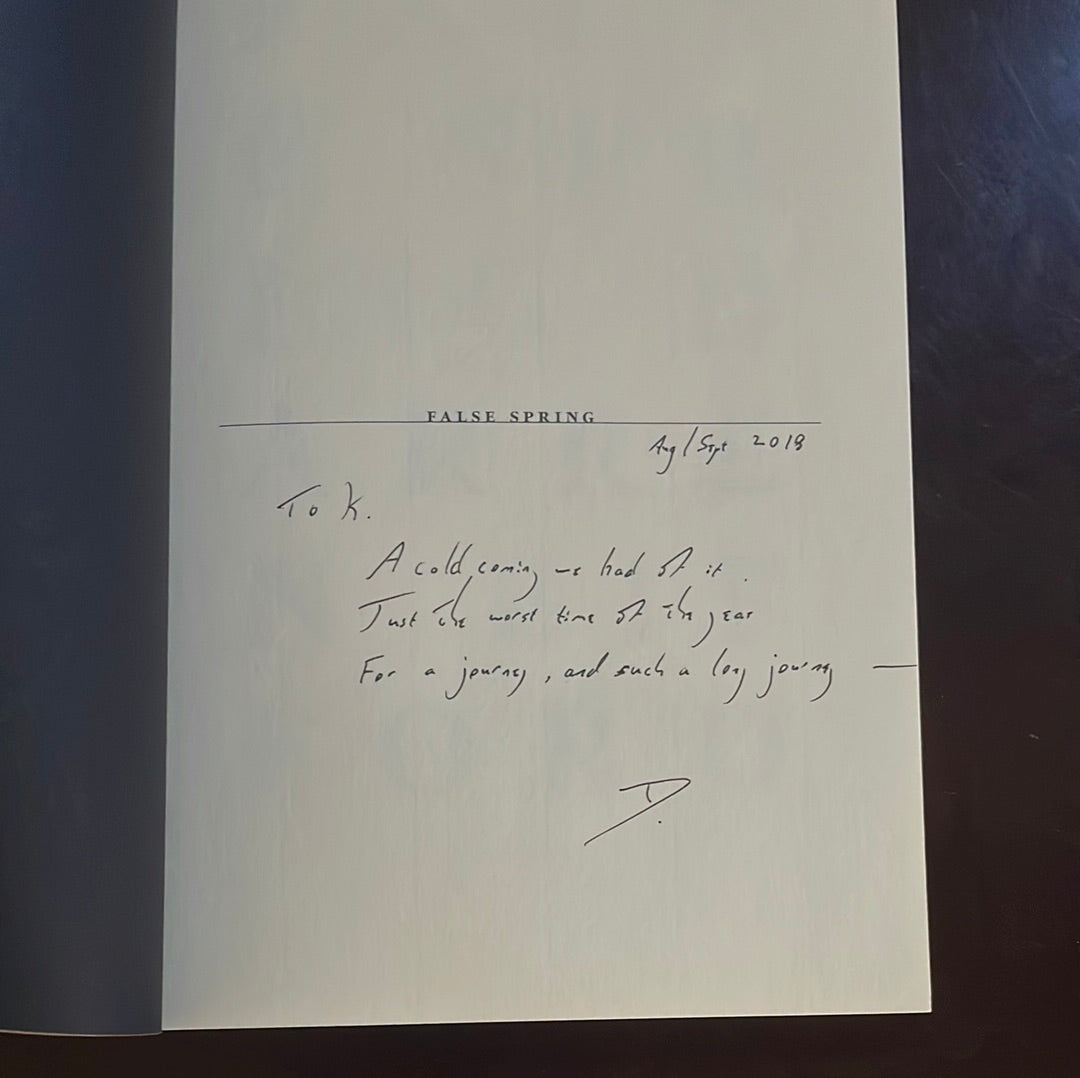 FALSE SPRING
Aug/Sept 2018
To K.
A cold coming we had of it.
Just the worst time of the year
For a journey, and such a long journey —
D.